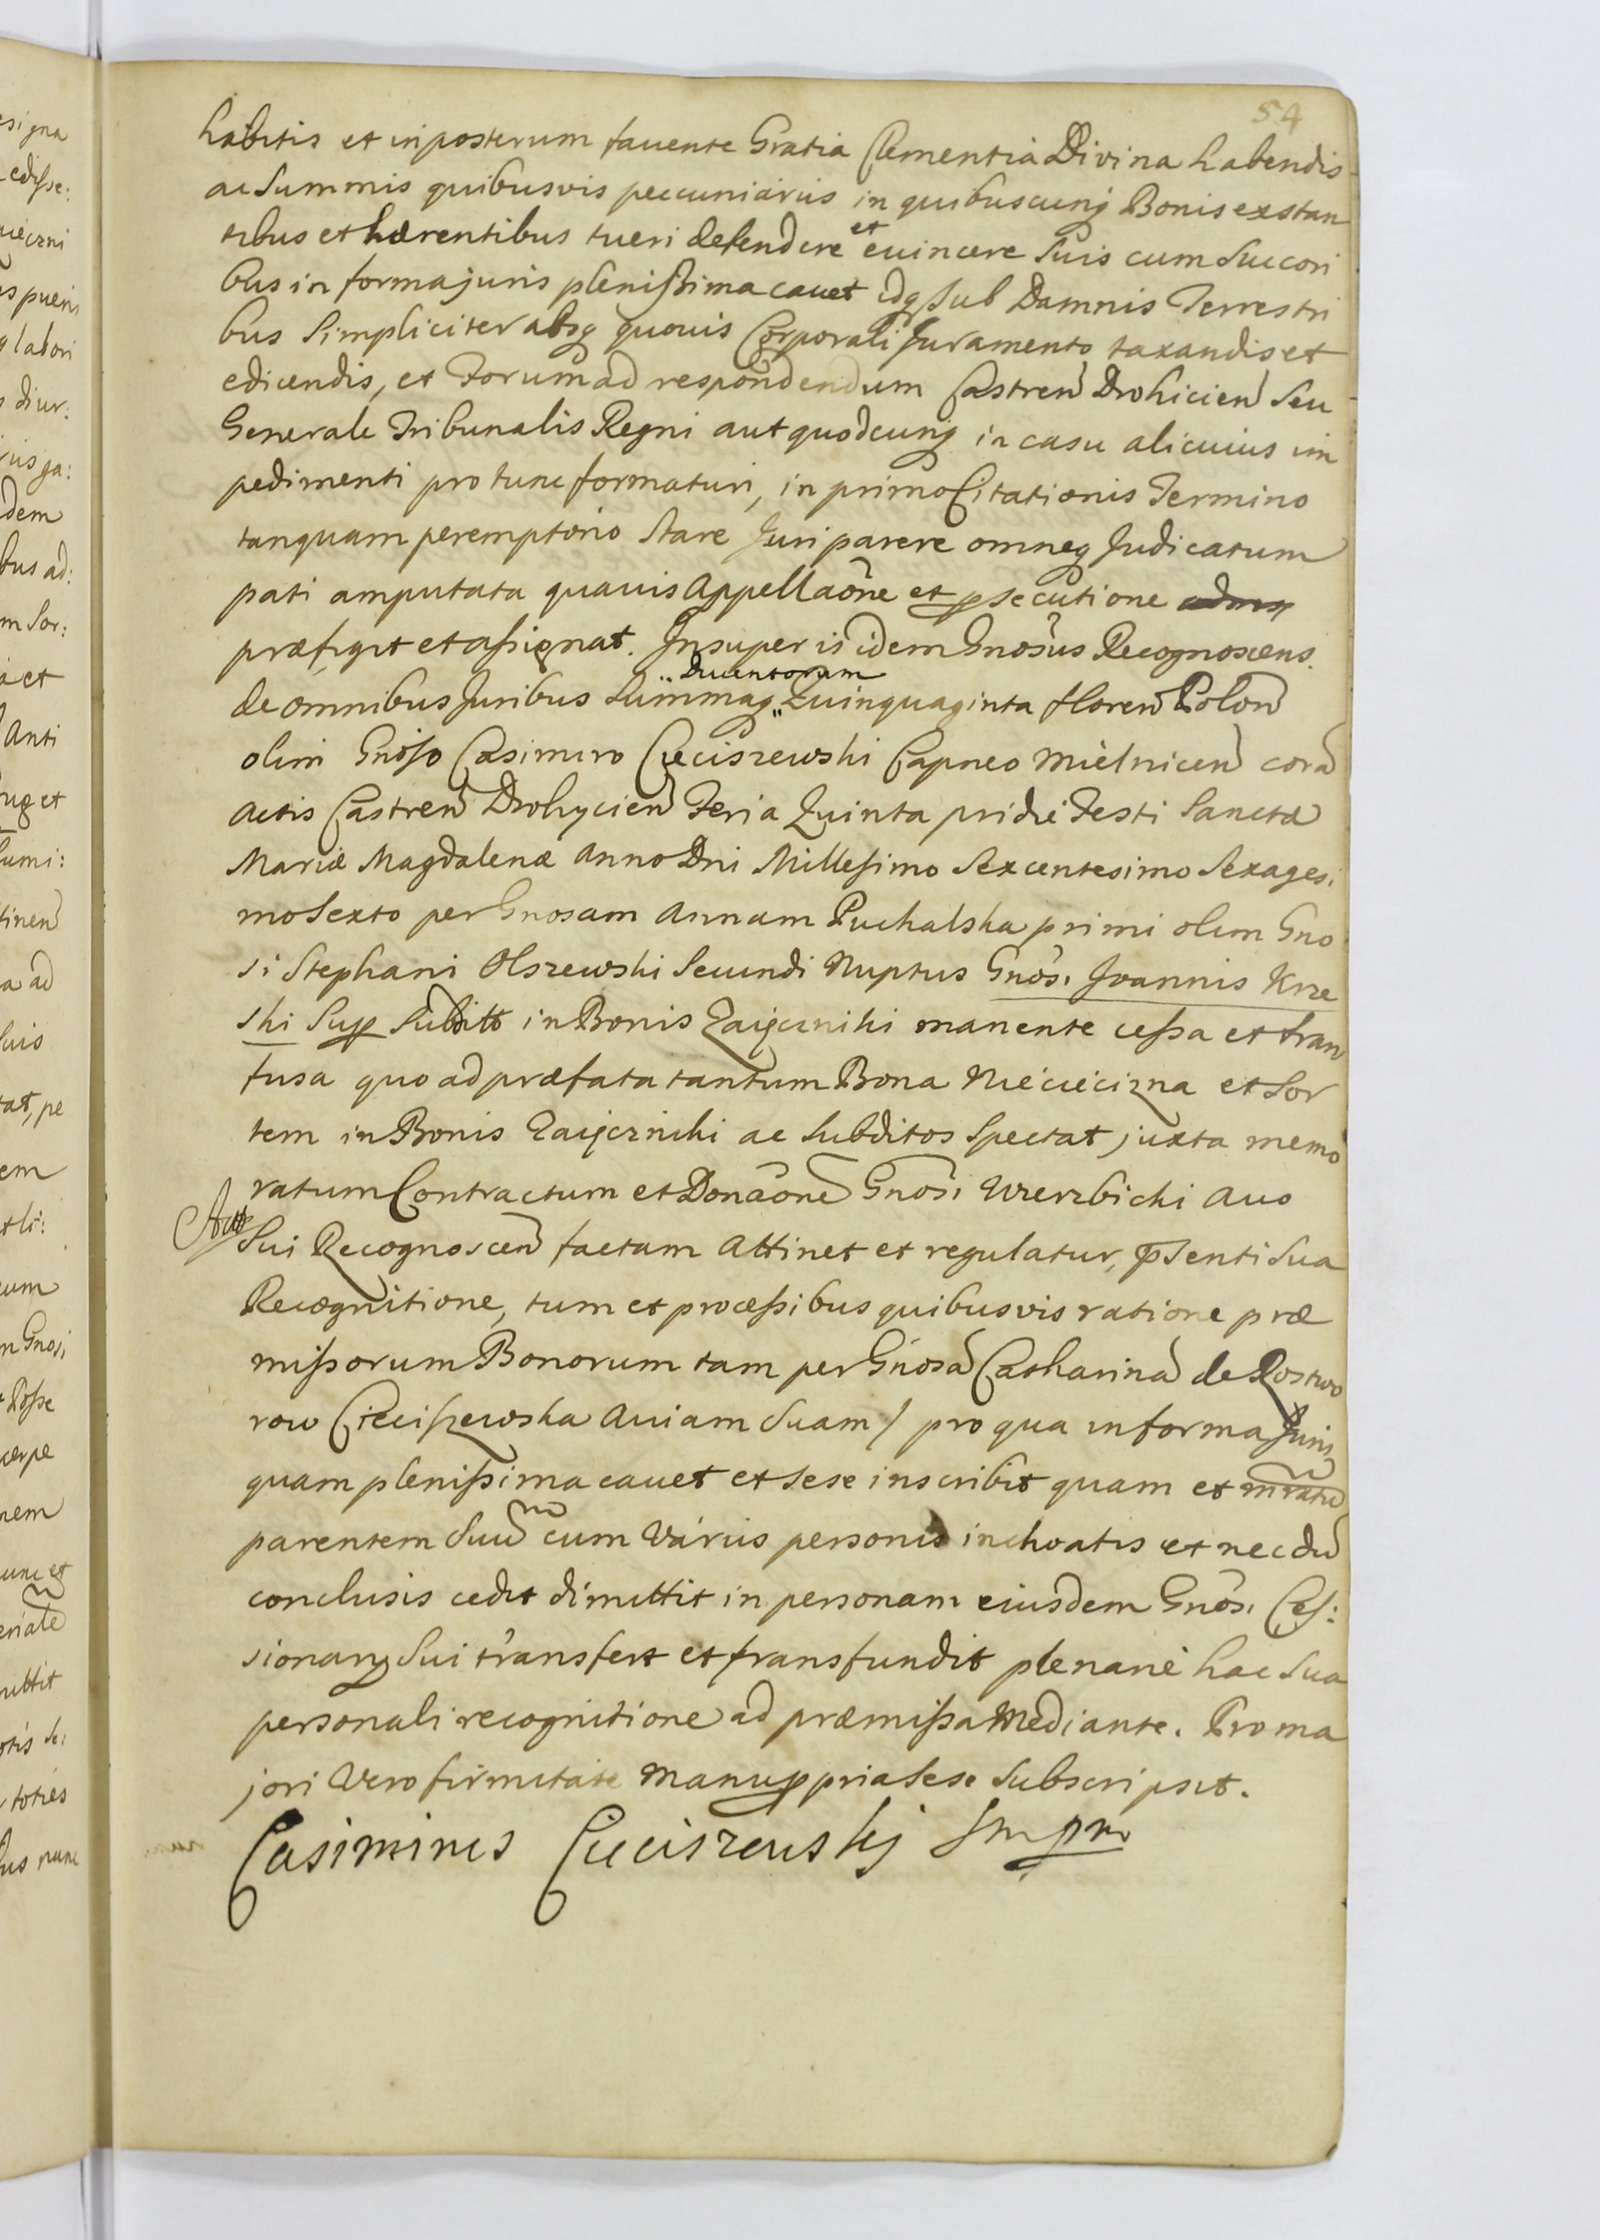 54
habitis et inposterum fauente Gratia Clementia Divina habendis
ac Summis quibusvis peccuniariis in quibuscunq Bonis exstan
tibus et hærentibus tueri defendere et euincere Suis cum Succori
bus in forma juris plenißima cauet idq sub Damnis Terrestri
bus Simpliciter absq quouis Corporali Juramento taxandis et
edicendis, et Forum ad respondendum Castren Drohicien Seu
Generale Tribunalis Regni aut quodcunq in casu alicuius im
pedimenti pro tunc formaturi, in primo Citationis Termino
tanquam peremptorio Stare Juri parere omneq Judicatum
pati amputata quauis Appellaõne et psecutione
præfigit et aßignat. Insuper is idem Gnosus Recognoscens.
de omnibus Juribus Summaq Ducentorum Quinquaginta floren Polon
olim Gnoso Casimiro Cieciszewski Capneo Mielnicen corã
Actis Castren Drohycien Feria Quinta pridie Festi Sanctæ
Mariæ Magdalenæ Anno Dni Millesimo Sexcentesimo Sexagesi
mo Sexto per Gnosam Annam Puchalska primi olim Gno
si Stephani Olszewski Secundi Nuptus Gnosi Joannis Krze
ski Sup Subditto in Bonis Zaięczniki manente ceßa et tran
fusa quo ad præfata tantum Bona Nieciecizna et Sor
tem in Bonis Zaięczniki ac Subditos Spectat juxta memo
ratum Contractum et Donãone Gnosi Wierzbicki Auo
Sui Recognoscen factam Attinet et regulatur, Psenti Sua
Recognitione, tum et proceßibus quibusvis ratione præ
mißorum Bonorum tam per Gnosã Catharinã de Rostwo
row Ciecißzewska Auiam Suam / pro qua in forma Juris
quam plenißima cauet et sese inscribit quam et mratũ
parentem Suũ cum Variis personis inchoatis et necdũ
conclusis cedit dimittit in personam eiusdem Gnosi Ces:
sionarij Sui transfert et transfundit plenariè hac Sua
personali recognitione ad præmißa Mediante. Pro ma
jori Vero firmitate Manu ppria Sese Subscripsit.
Casimirus Cieciszewskij Smpm